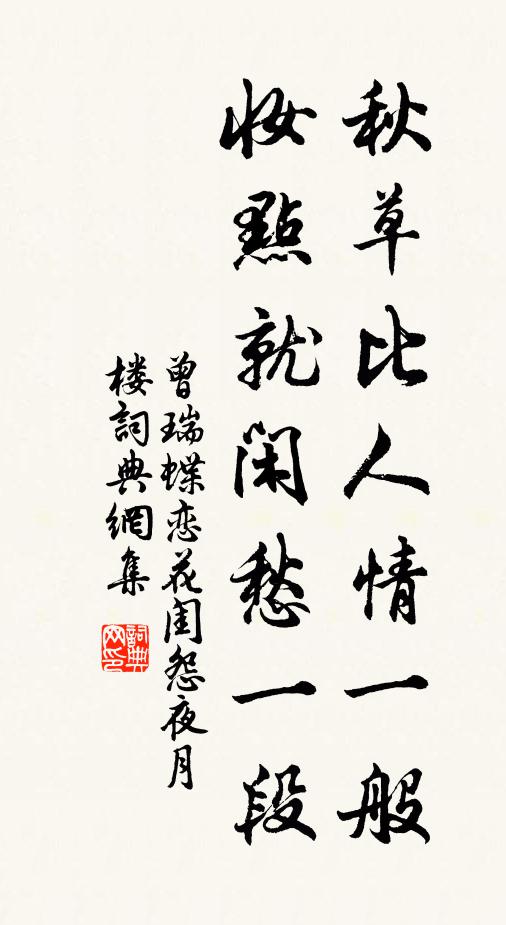 秋草比人情一般
妆點就闲愁一段
曾瑞蝶恋花闺怨夜月
楼詞典網集
詞典
网印